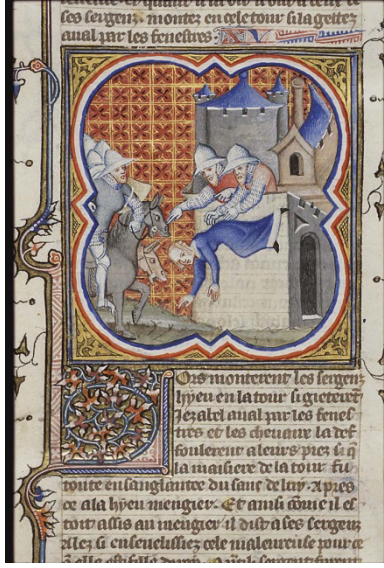 ses sergenz. montez en cele tour si la gettez
aual par les fenestres.
Ors monterent les sergenz
hyeu en la tour si gieterent
Jezabel aual par les fenes
tres et les cheuaux la def
foulerent a leurs piez si q̃
la maisiere de la tour fu
toute ensanglantee du sanc de luy. Apres
ce ala hyeu mengier. Et ainsi cõme il es
toit assis au mengier il dist a ses sergenz
Alez si enseuelissiez cele maleureuse pour ce